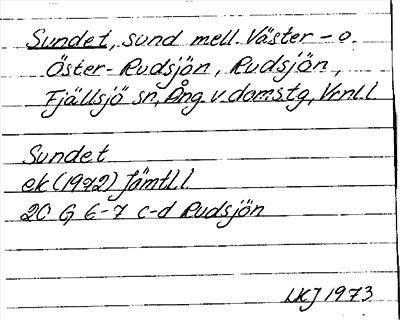 Sundet, sund mell. Väster- o.
Öster-Rudsjön, Rudsjön,
Fjällsjö sn, Ång. v. doms.tg, Vrnl.l
Sundet
ek (1972) Jämtl.l
20 G 6-7 c-d Rudsjön
LKJ 1973